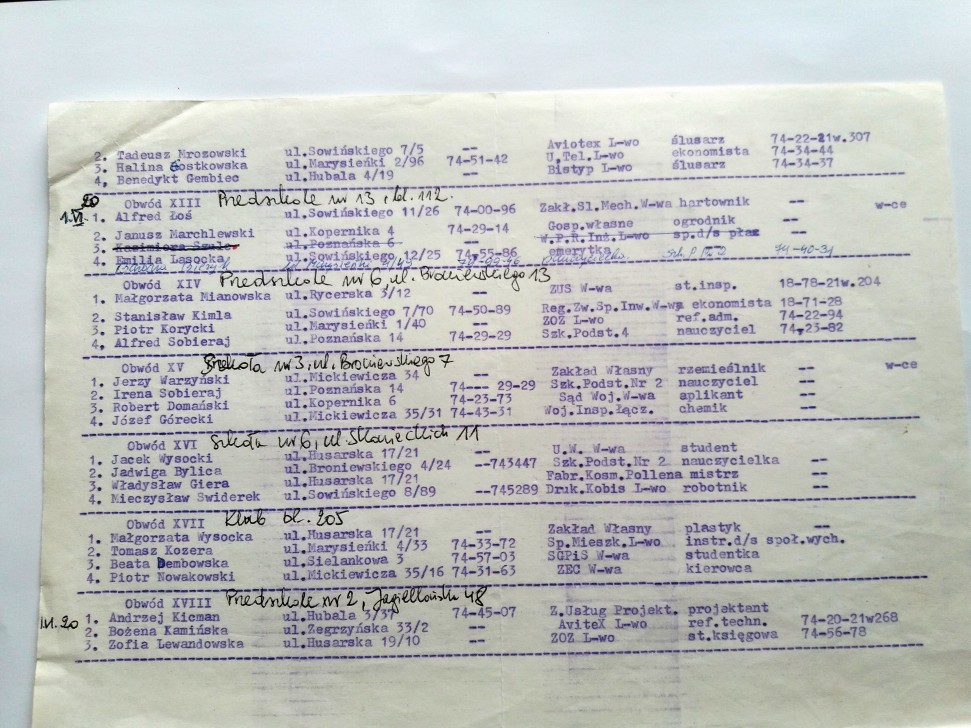 2. Tadeusz Mrozowski ul.Sowińskiego 7/5 -- Aviotex L-wo ślusarz 74-22-21w.307
3. Halina Gostkowska ul.Marysieńki 2/96 74-51-42 U.Tel.L-wo ekonomista 74-34-44
4, Benedykt Gembiec ul.Hubala 4/19 -- Bistyp L-wo ślusarz 74-34-37
20 Obwód XIII Przedszkole nr 13, bl. 112.
1.VI. 1. Alfred Łoś ul.Sowińskiego 11/26 74-00-96 Zakł.Sl.Mech.W-wa hartownik -- w-ce
2. Janusz Marchlewski ul.Kopernika 4 74-29-14 Gosp.własne ogrodnik --
3. Kazimiera Szulc. ul.Poznańska 6 W.P.R.Inż.L-wo sp.d/s płac
4. Emilia Lasocka ul.Sowińskiego 12/25 74-55-86 emerytka -- 74-40-31
Obwód XIV Przedszkole nr 6, ul. Broniewskiego 13
1. Małgorzata Mianowska ul.Rycerska 3/12 ZUS W-wa st.insp. 18-78-21w.204
2. Stanisław Kimla ul.Sowińskiego 7/70 74-50-89 Reg.Zw.Sp.Inw.W-wa ekonomista 18-71-28
3. Piotr Korycki ul.Marysieńki 1/40 -- ZOZ L-wo ref.adm. 74-22-94
4, Alfred Sobieraj ul.Poznańska 14 74-29-29 Szk.Podst.4 nauczyciel 74,23-82
Obwód XV Szkoła nr 3, ul. Broniewskiego 7
1. Jerzy Warzyński ul.Mickiewicza 34 -- Zakład Własny rzemieślnik -- w-ce
2. Irena Sobieraj ul.Poznańska 14 74--- 29-29 Szk.Podst.Nr 2 nauczyciel --
3. Robert Domański ul.Kopernika 6 74-23-73 Sąd Woj.W-wa aplikant --
4. Józef Górecki ul.Mickiewicza 35/31 74-43-31 Woj.Insp.łącz. chemik --
Obwód XVI Szkoła nr 6, ul. Skoniecki​ch 11
1. Jacek Wysocki ul.Husarska 17/21 -- U.W. W-wa student
2. Jadwiga Bylica ul.Broniewskiego 4/24 --743447 Szk.Podst.Nr 2 nauczycielka --
3. Władysław Giera ul.Husarska 17/21 Fabr.Kosm.Pollena mistrz --
4. Mieczysław Swiderek ul.Sowińskiego 8/89 --745289 Druk.Kobis L-wo robotnik --
Obwód XVII Klub bl. 205
1. Małgorzata Wysocka ul.Husarska 17/21 -- Zakład Własny plastyk --
2. Tomasz Kozera ul.Marysieńki 4/33 74-33-72 Sp.Mieszk.L-wo instr.d/s społ.wych.
3. Beata Dembowska ul.Sielankowa 3 74-57-03 SGPiS W-wa studentka
4. Piotr Nowakowski ul.Mickiewicza 35/16 74-31-63 ZEC W-wa kierowca
Obwód XVIII Przedszkole nr 2, Jagiellońska 48
1. Andrzej Kicman ul.Hubala 3/37 74-45-07 Z.Usług Projekt. projektant
2. Bożena Kamińska ul.Zegrzyńska 33/2 -- AviteX L-wo ref.techn. 74-20-21w268
3. Zofia Lewandowska ul.Husarska 19/10 -- ZOZ L-wo st.księgowa 74-56-78